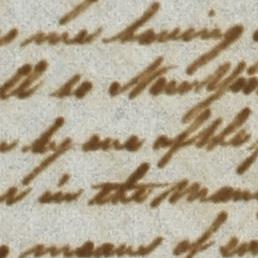 me having
ll to New Yor
by one of the
in the man
means of